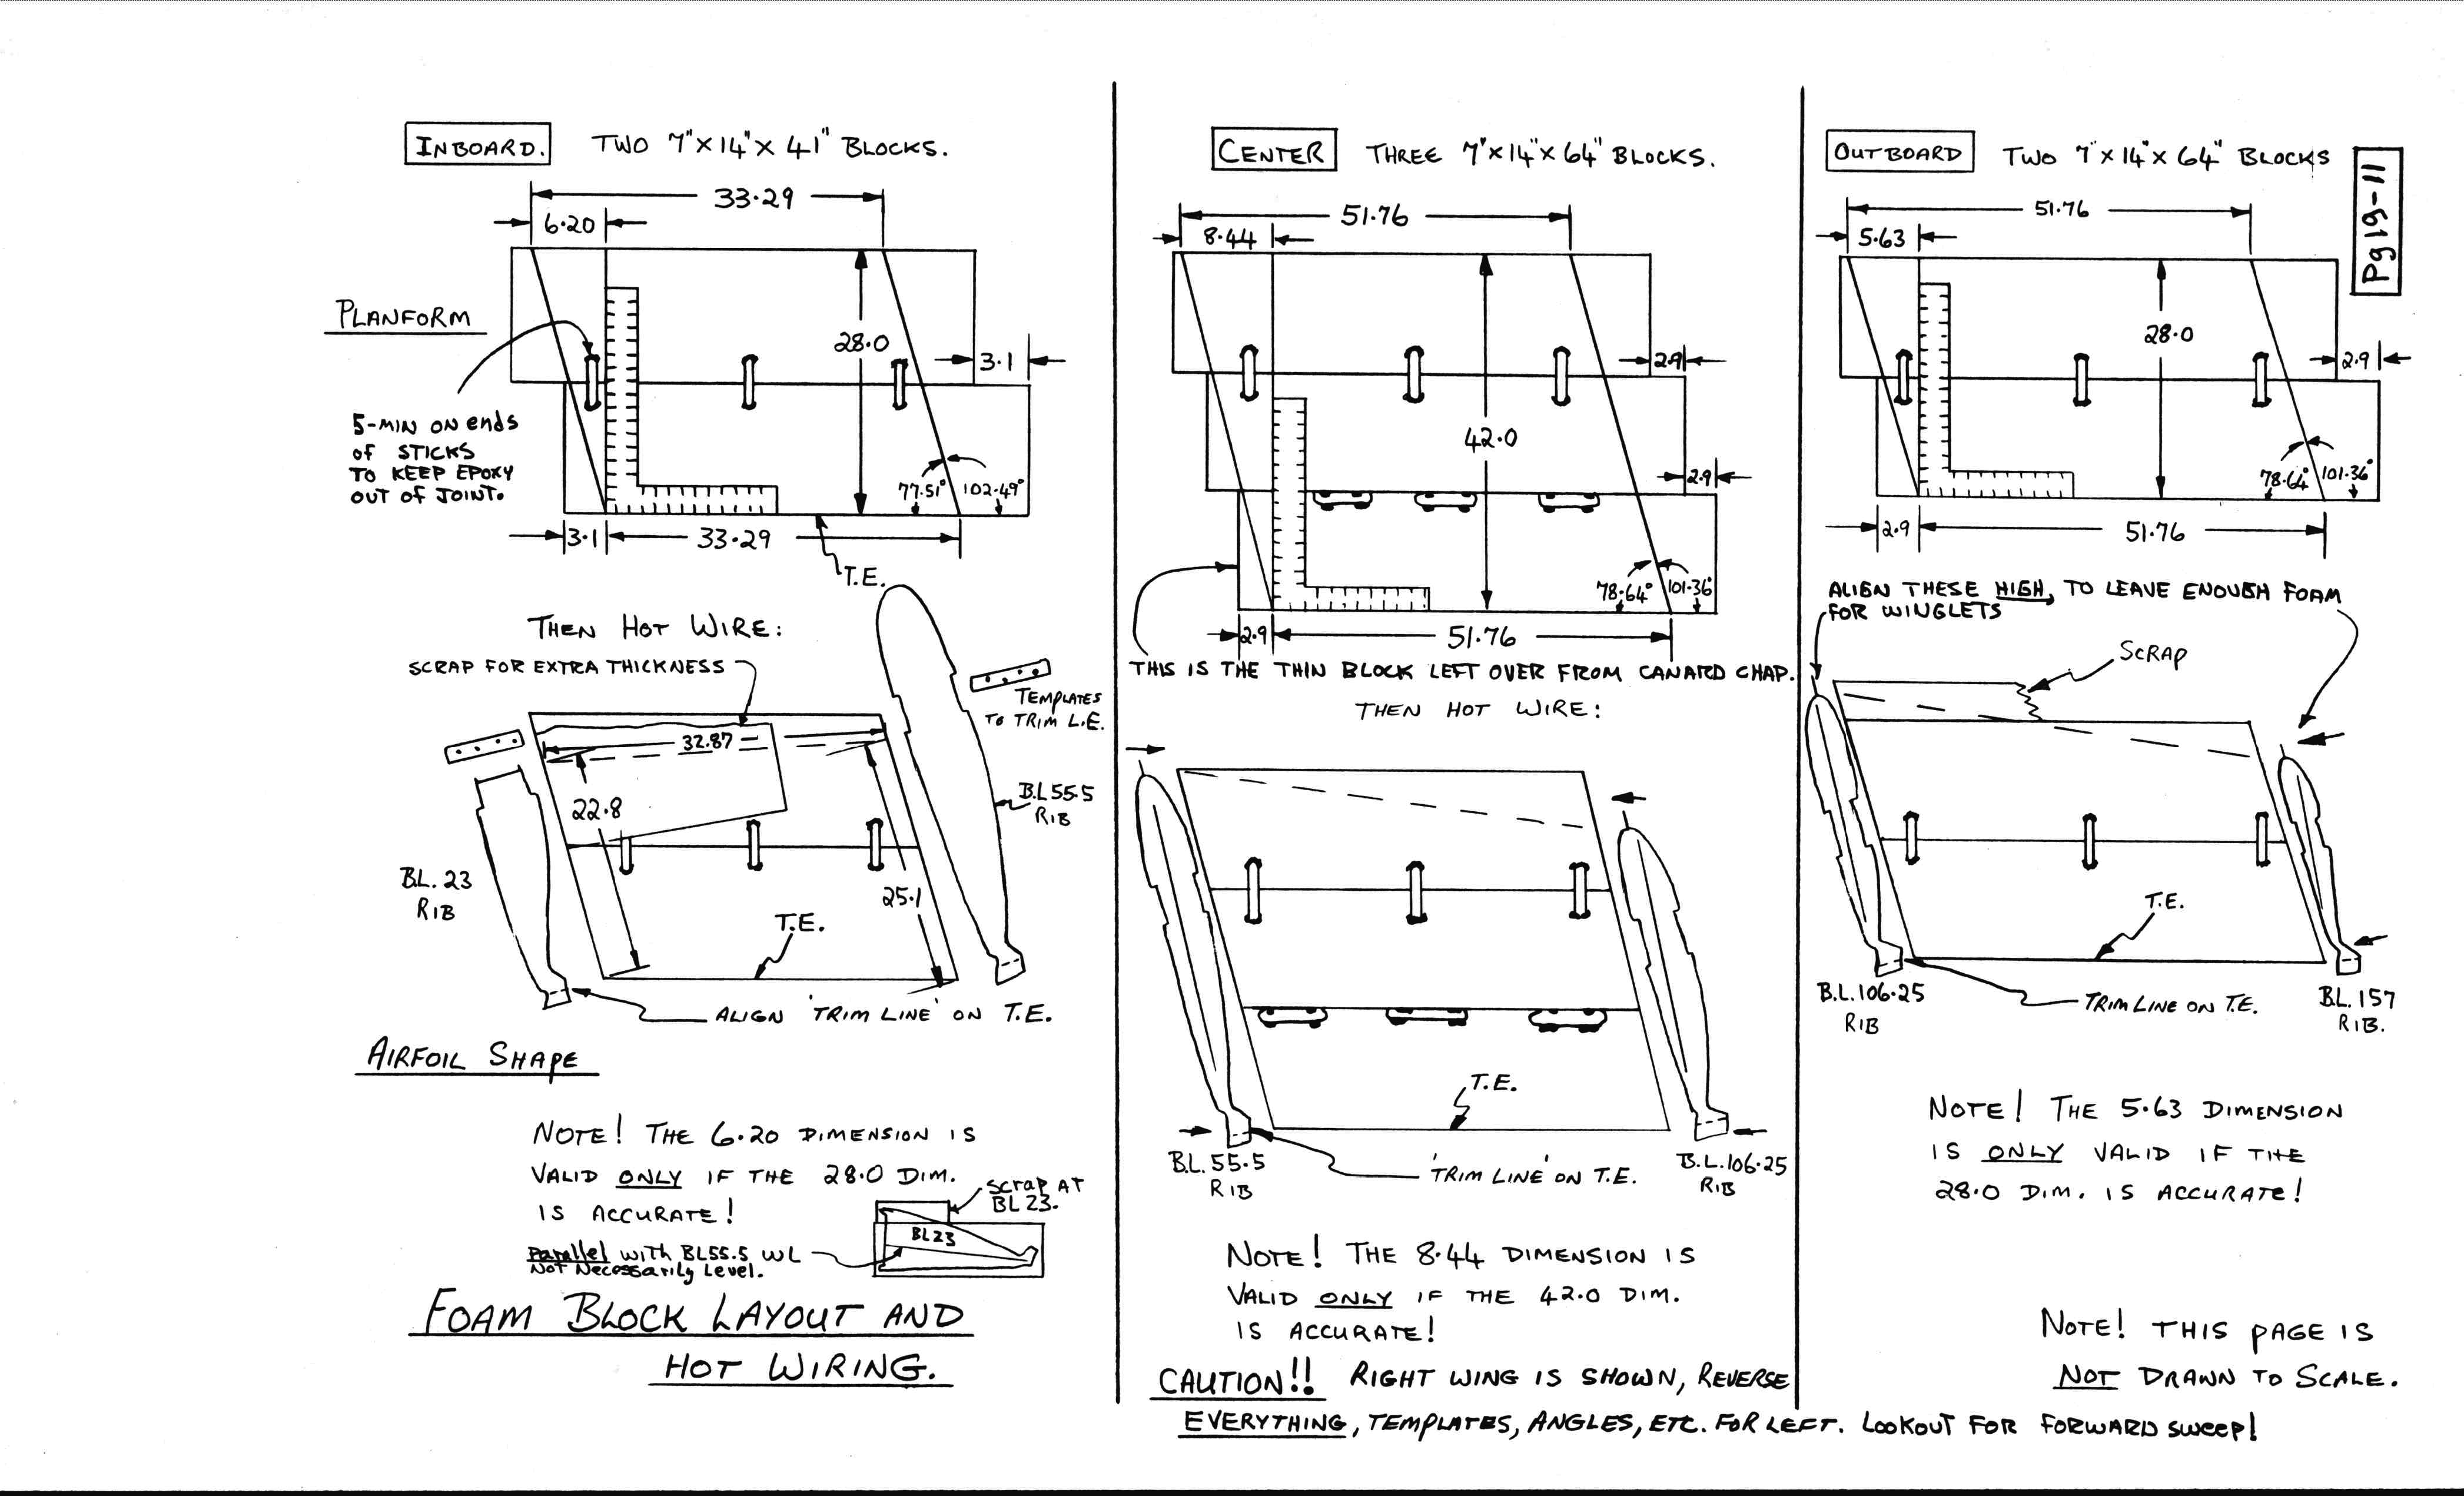 INBOARD. TWO 7"X14"X 41" BLOCKS.
33.29
6.20
PLANFORM
28.0
3.1
5-MIN ON ends
of STICKS
TO KEEP EPOXY
OUT OF JOINT.
77.51° 102.49°
3.1 33.29
T.E.
THEN HOT WIRE:
SCRAP FOR EXTRA THICKNESS
TEMPLATES
TO TRIM L.E.
32.87
22.8
B.L 55.5
RIB
B.L. 23
RIB
25.1
T.E.
ALIGN 'TRIM LINE' ON T.E.
AIRFOIL SHAPE
NOTE! THE 6.20 DIMENSION IS
VALID ONLY IF THE 28.0 DIM.
IS ACCURATE!
SCRAP AT
BL 23.
BL23
Parallel with BL55.5 WL
Not Necessarily Level.
FOAM BLOCK LAYOUT AND
HOT WIRING.
CENTER THREE 7"X14"X64" BLOCKS.
51.76
8.44
2.9
42.0
2.9
78.64° 101.36°
2.9 51.76
THIS IS THE THIN BLOCK LEFT OVER FROM CANARD CHAP.
THEN HOT WIRE:
T.E.
B.L. 55.5
RIB
'TRIM LINE' ON T.E.
B.L.106.25
RIB
NOTE! THE 8.44 DIMENSION IS
VALID ONLY IF THE 42.0 DIM.
IS ACCURATE!
CAUTION!! RIGHT WING IS SHOWN, REVERSE
EVERYTHING, TEMPLATES, ANGLES, ETC. FOR LEFT. LOOKOUT FOR FORWARD SWEEP!
OUTBOARD TWO 7"X14"X64" BLOCKS
Pg19-11
51.76
5.63
28.0
2.9
78.64° 101.36°
2.9 51.76
ALIGN THESE HIGH, TO LEAVE ENOUGH FOAM
FOR WINGLETS
SCRAP
T.E.
B.L.106.25
RIB
TRIM LINE ON T.E.
B.L. 157
RIB.
NOTE! THE 5.63 DIMENSION
IS ONLY VALID IF THE
28.0 DIM. IS ACCURATE!
NOTE! THIS PAGE IS
NOT DRAWN TO SCALE.